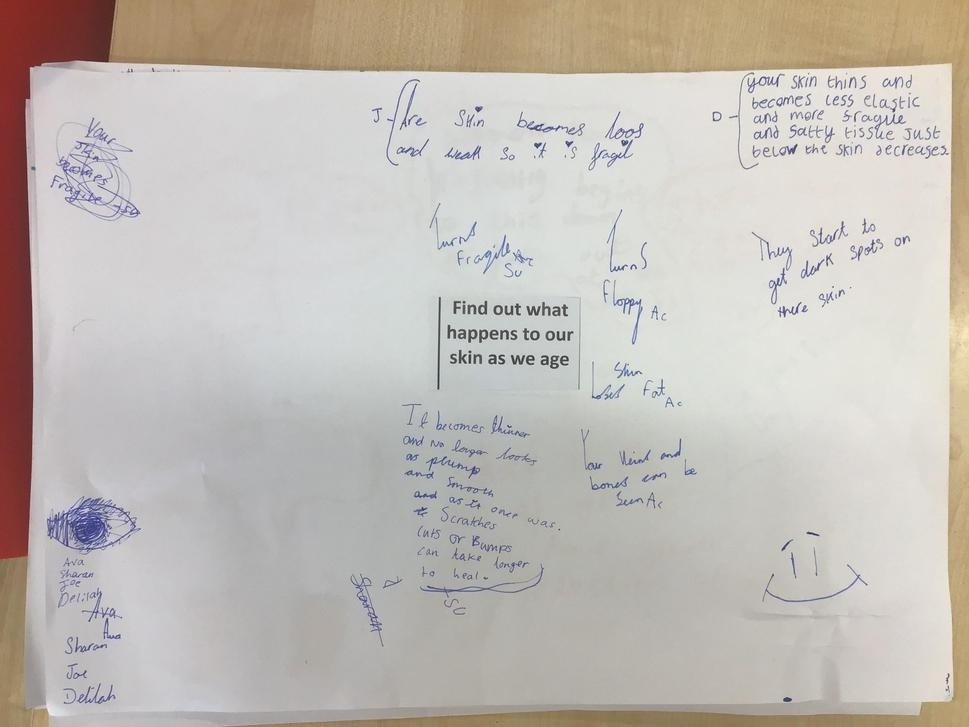 J - Are skin becomes loos
and weak so it is fragil
D - your skin thins and
becomes less elastic
and more fragile
and fatty tissue just
below the skin decreases
Your
skin
becomes
Fragile -su
Turns
Fragile
Su
Turns
Floppy Ac
They start to
get dark spots on
there skin.
Find out what
happens to our
skin as we age
Skin
Loses Fat Ac
It becomes thinner
and no longer looks
as plump
and smooth
and as it once was.
Scratches
cuts or Bumps
can take longer
to heal.
Su
Your Veins and
bones can be
seen Ac
Ava
Sharan
Joe
Delilah
Ava
Ava
Sharan
Joe
Delilah
Sharan